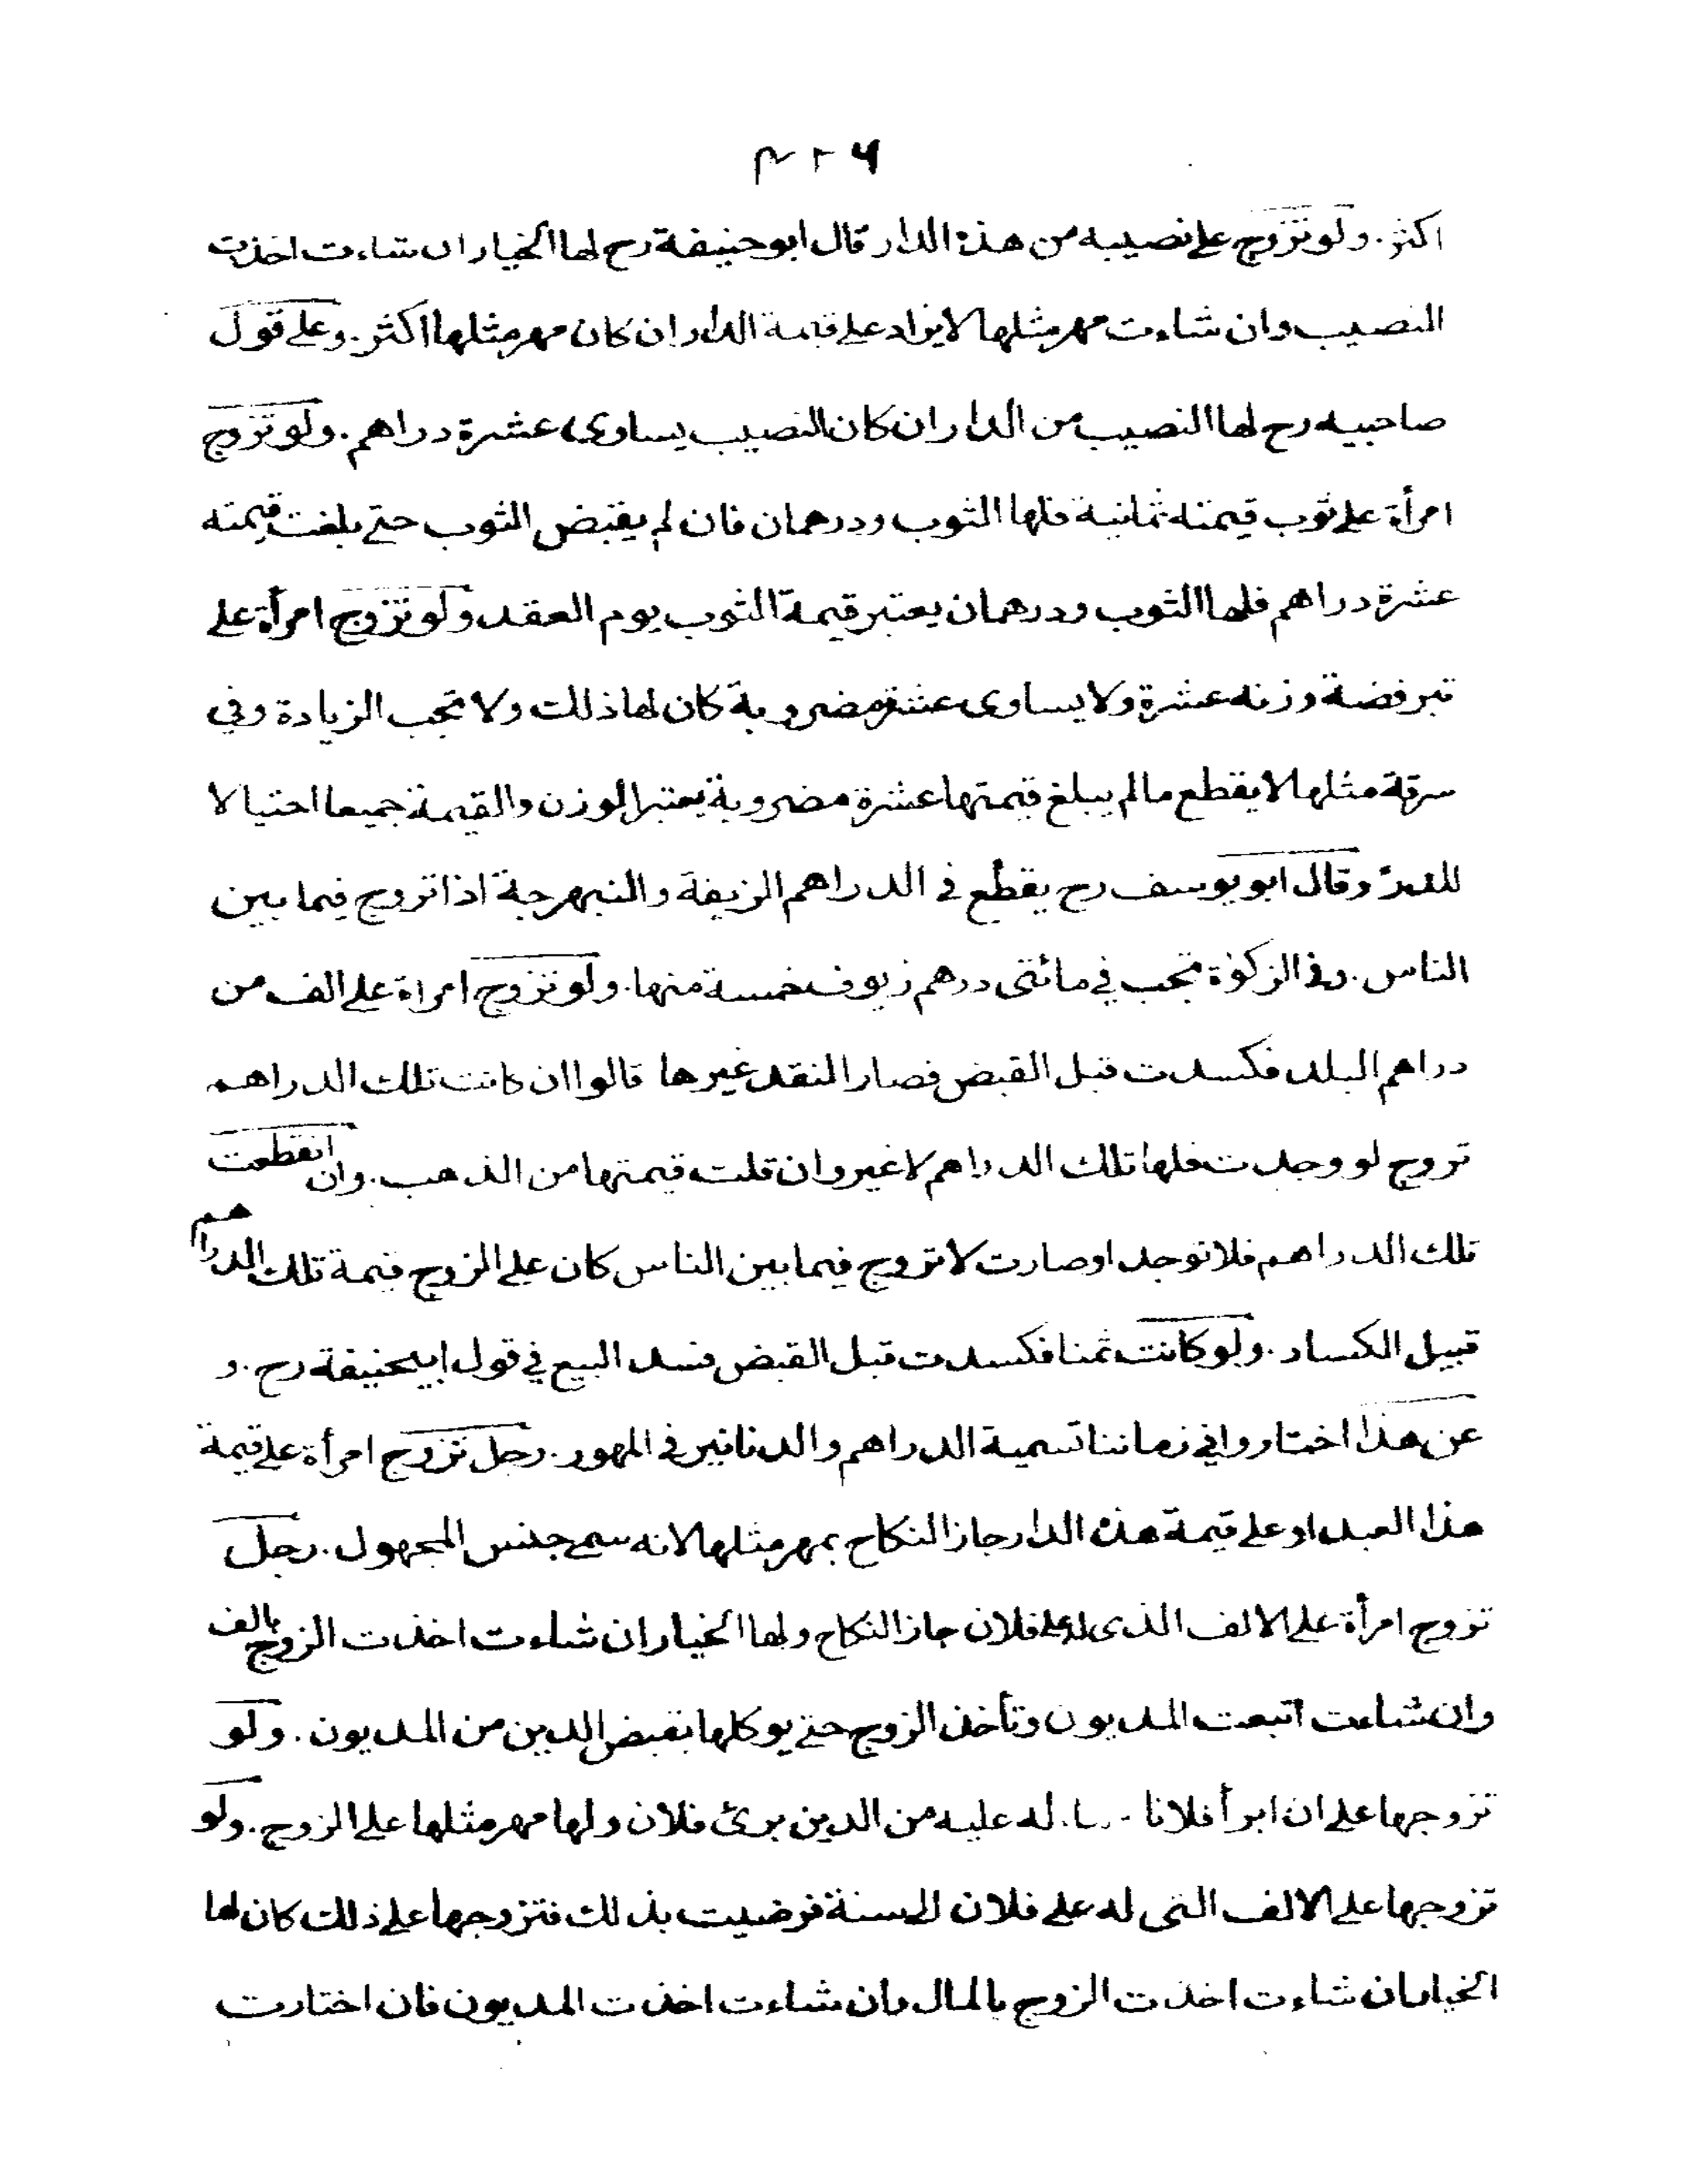 ۴۲۶
اكثر. ولو تزوج على نصيبه من هذه الدار قال ابو حنيفة رح لها الخيار ان شاءت اخذت
النصيب وان شاءت مهر مثلها لا يزاد على قيمة الدار ان كان مهر مثلها اكثر. وعلى قول
صاحبيه رح لها النصيب من الدار ان كان النصيب يساوى عشرة دراهم. ولو تزوج
امرأة على ثوب قيمته ثمانية فلها الثوب ودرهمان فان لم يقبض الثوب حتى بلغت قيمته
عشرة دراهم فلها الثوب ودرهمان يعتبر قيمة الثوب يوم العقد ولو تزوج امرأة على
تبر فضة وزنه عشرة ولا يساوى عشرة مضروبة كان لها ذلك ولا تجب الزيادة وفي
سرقة مثلها لا يقطع ما لم يبلغ قيمتها عشرة مضروبة يعتبر الوزن والقيمة جميعا احتيالا
للدرء وقال ابو يوسف رح يقطع في الدراهم الزيفة والنبهرجة اذا تروج فيما بين
الناس. وفي الزكوة تجب في مائتى درهم زيوف خمسة منها. ولو تزوج امراة على الف من
دراهم البلد فكسدت قبل القبض فصار النقد غيرها قالوا ان كانت تلك الدراهم
تروج لو وجدت فلها تلك الدراهم لا غير وان قلت قيمتها من الذهب. وان انقطعت
تلك الدراهم فلا توجد او صارت لا تروج فيما بين الناس كان على الزوج قيمة تلك الدراهم
قبيل الكساد. ولو كانت ثمنا فكسدت قبل القبض فسد البيع في قول ابيحنيفة رح. و
عن هذا اختاروا في زماننا تسمية الدراهم والدنانير في المهور. رجل تزوج امرأة على قيمة
هذا العبد او على قيمة هذه الدار جاز النكاح بمهر مثلها لانه سمى جنس المجهول. رجل
تزوج امرأة على الالف الذى له على فلان جاز النكاح ولها الخيار ان شاءت اخذت الزوج بالف
وان شاءت اتبعت المديون وتأخذ الزوج حتى يوكلها بقبض الدين من المديون. ولو
تزوجها على ان ابرأ فلانا له عليه من الدين برئ فلان ولها مهر مثلها على الزوج. ولو
تزوجها على الالف التى له على فلان الى سنة فرضيت بذلك فتزوجها على ذلك كان لها
الخيار ان شاءت اخذت الزوج بالمال وان شاءت اخذت المديون فان اختارت